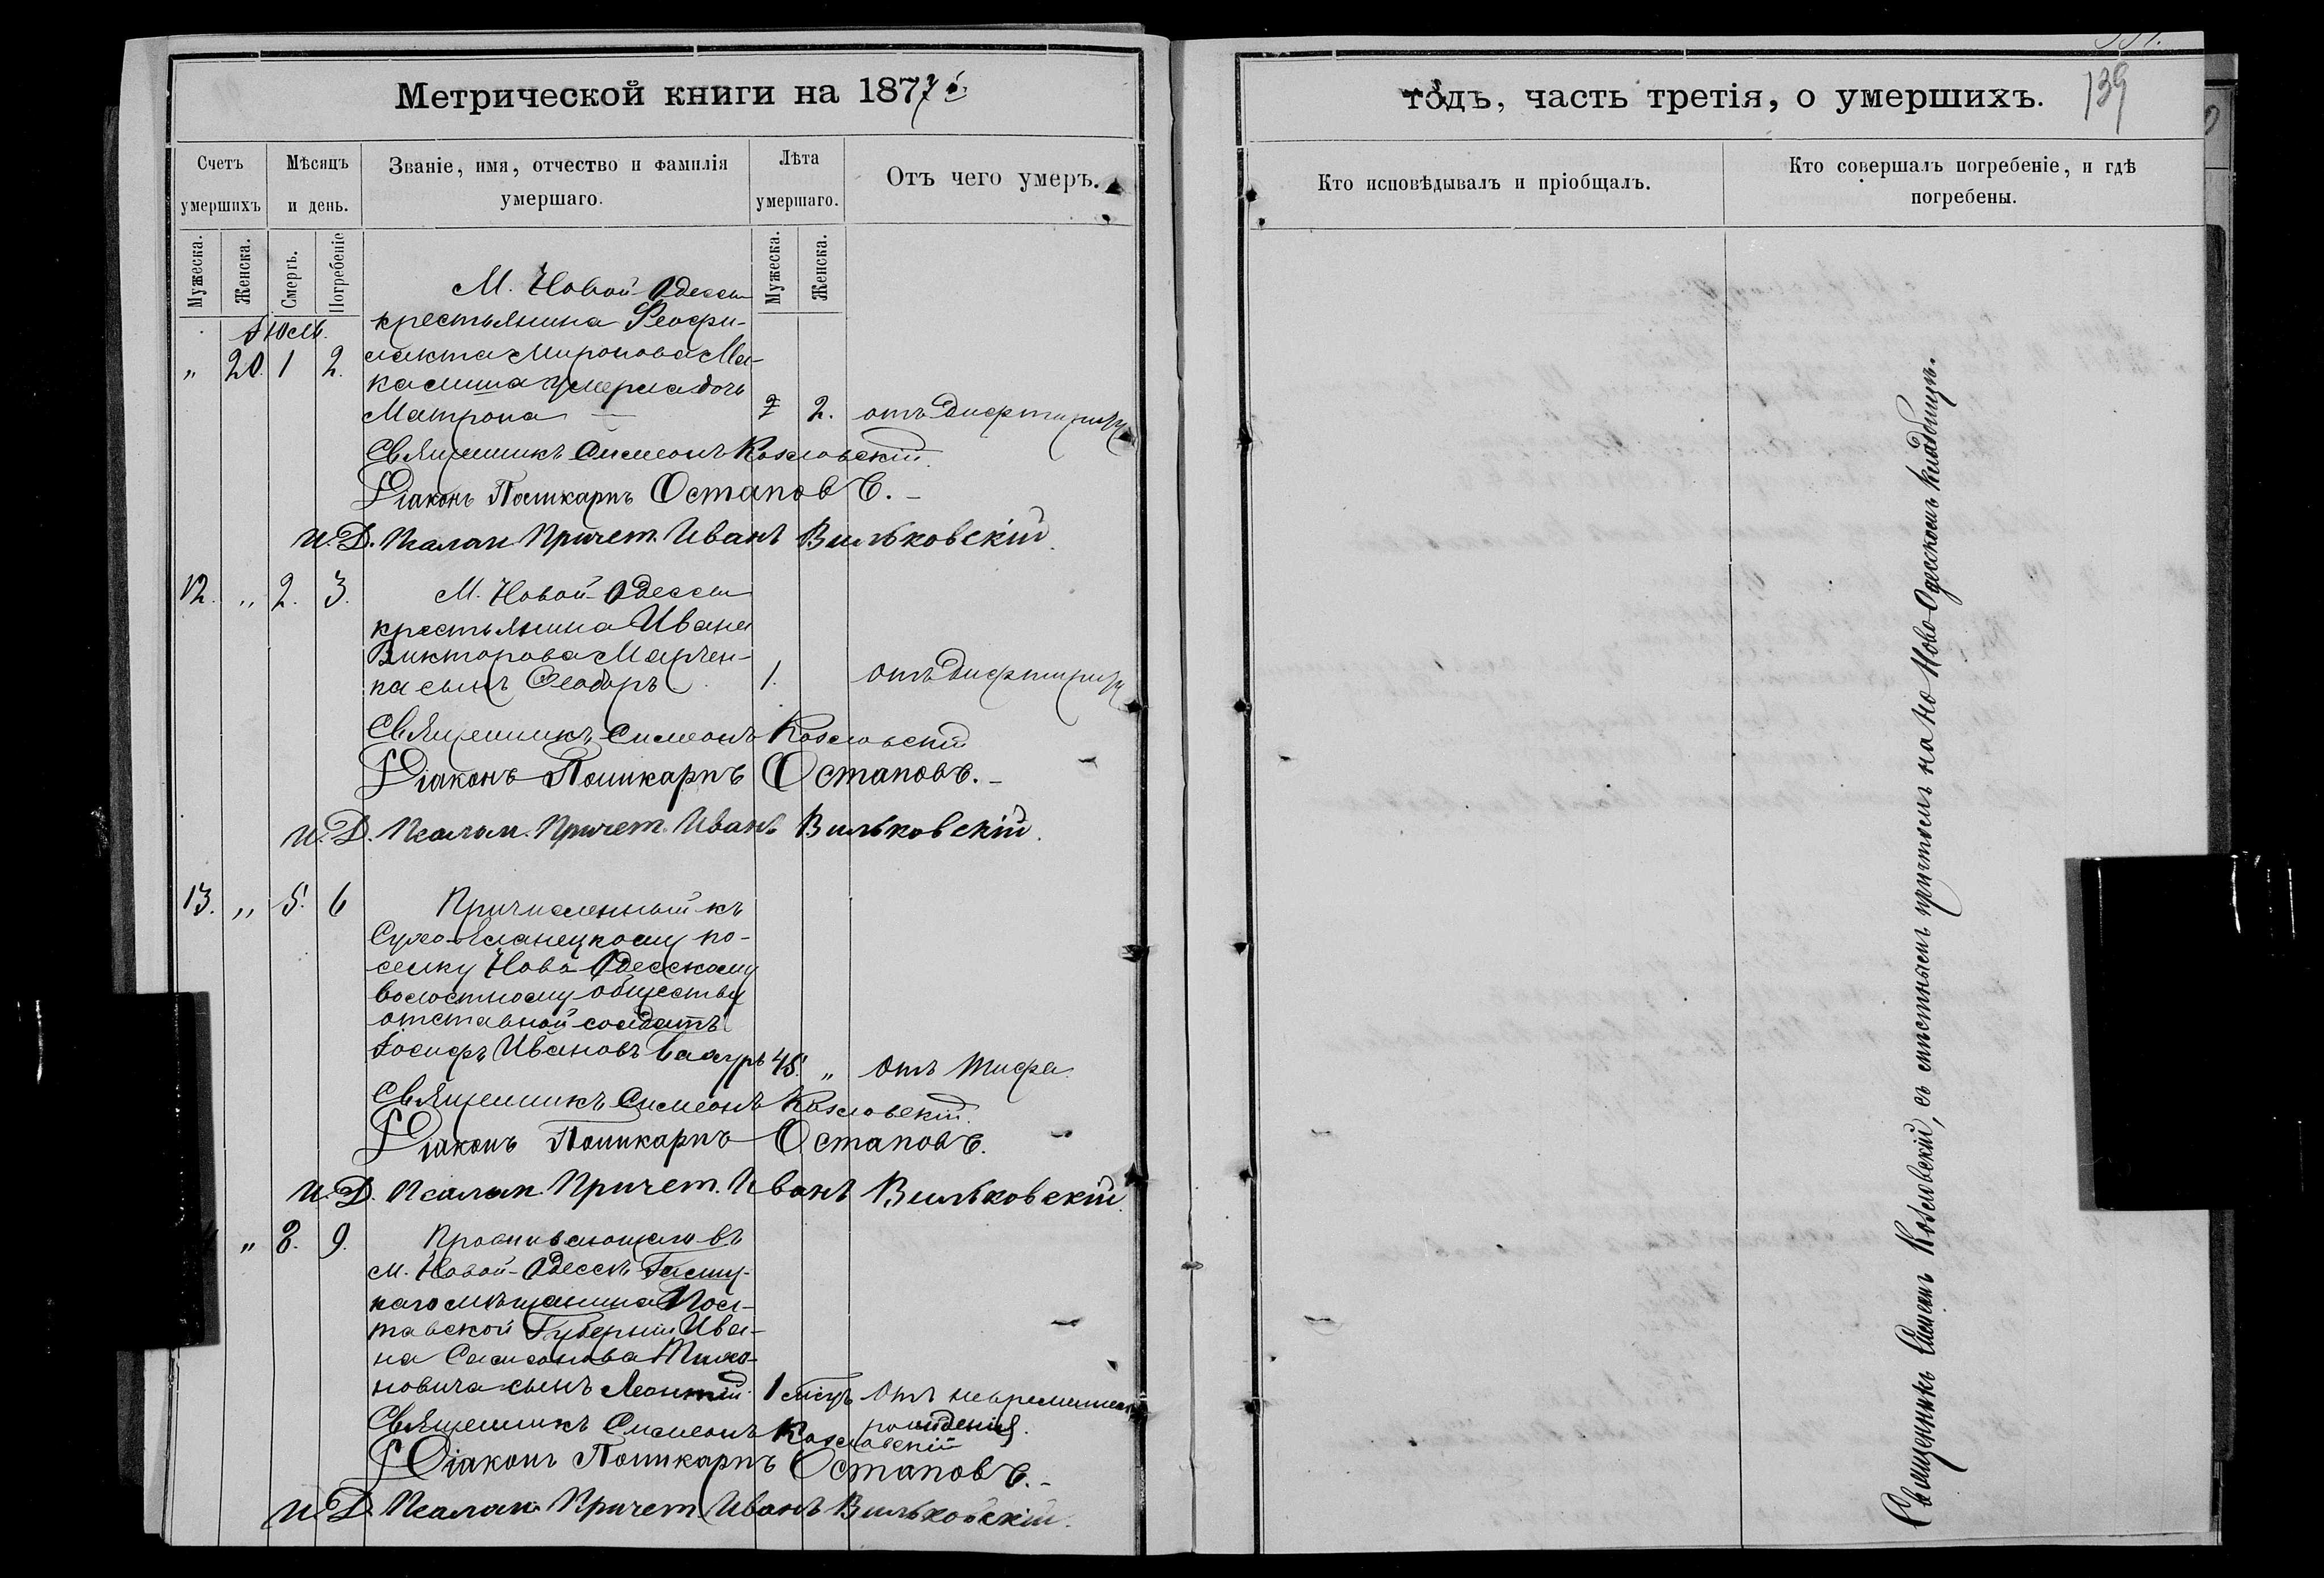 Метрической книги на 1877 й
Счетъ умершихъ
Мѣсяцъ и день.
Званіе, имя, отчество и фамилія умершаго.
Лѣта умершаго.
Отъ чего умеръ.
Мужеска.
Женска.
Смерть.
Погребеніе
Мужеска.
Женска.
Іюль.
М. Новой-Одессы
крестьянина Феофи-
" 20. 1 2. лакта Миронова Ма-
умерла дочь
Матрона 2. отъ дифтирита
Священникъ Симеонъ Козловскій.
Діаконъ Поликарпъ Остаповъ.
И. Д. Псалом. Причет. Иванъ Вильковскій.
12. " 2. 3. М. Новой-Одессы
крестьянина Ивана
Викторова Марчен-
ка сынъ Феодоръ 1. отъ дифтирита
Священникъ Симеонъ Козловскій
Діаконъ Поликарпъ Остаповъ.
И. Д. Псалом. Причет. Иванъ Вильковскій.
13. " 5. 6 Причисленный къ
Сухо-Еланецкому по-
селку Ново-Одесскому
волостному обществу
отставной солдатъ
Іосифъ Ивановъ 45. " отъ тифа
Священникъ Симеонъ Козловскій.
Діаконъ Поликарпъ Остаповъ.
И. Д. Псалом. Причет. Иванъ Вильковскій.
" 8. 9. Проживающаго въ
м. Новой-Одессѣ
мѣщанина Пол-
тавской Губерніи Ива-
на Самсонова
сынъ Леонтій 1 мѣсцъ отъ
Священникъ Симеонъ Козловскій
рожденія.
Діаконъ Поликарпъ Остаповъ.
И. Д. Псалом. Причет. Иванъ Вильковскій.
годъ, часть третія, о умершихъ.
139
Кто исповѣдывалъ и пріобщалъ.
Кто совершалъ погребеніе, и гдѣ погребены.
Священникъ Симеонъ Козловскій, съ причтомъ на Ново-Одесскомъ кладбищѣ.